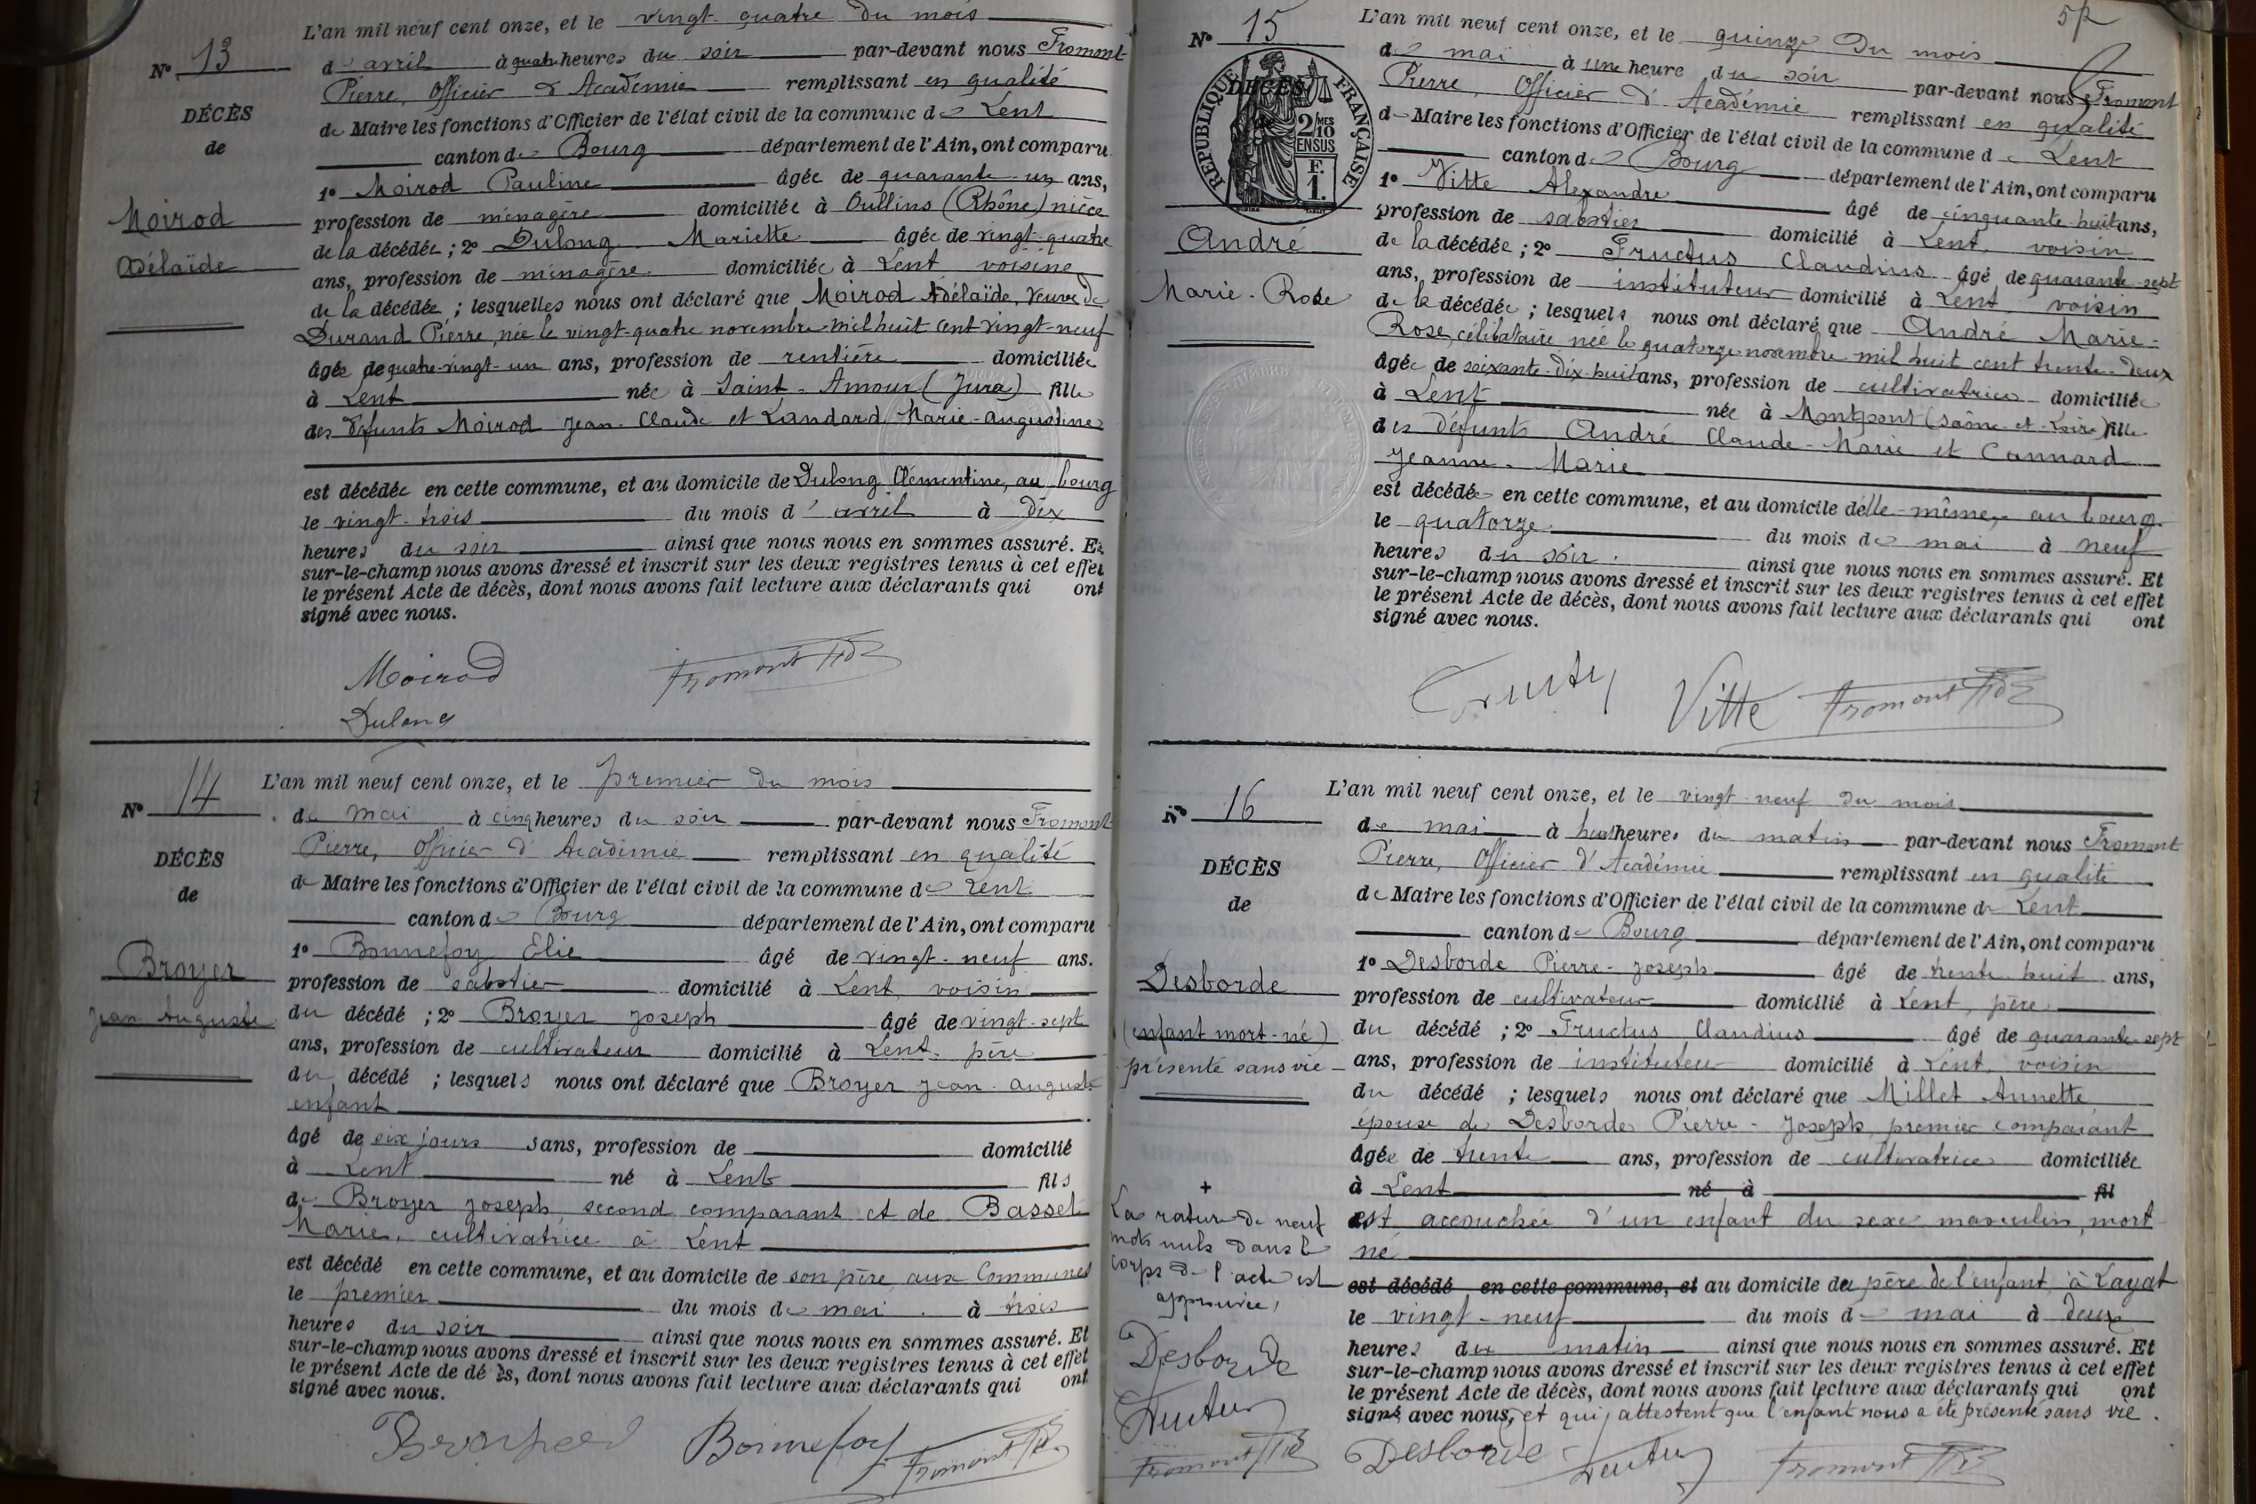 L'an mil neuf cent onze, et le vingt-quatre du mois
N° 13
d'avril à quatre heures du soir par-devant nous Fromont
Pierre, Officier d'Académie remplissant en qualité
DÉCÈS
de Maire les fonctions d'Officier de l'état civil de la commune de Lent
de
canton de Bourg département de l'Ain, ont comparu
1° Moirod Pauline âgée de quarante-un ans,
Moirod
profession de ménagère domiciliée à Oullins (Rhône) nièce
de la décédée ; 2° Dulong Mariette âgée de vingt-quatre
Adélaïde
ans, profession de ménagère domiciliée à Lent voisine
de la décédée ; lesquelles nous ont déclaré que Moirod Adélaïde, veuve de
Durand Pierre, née le vingt-quatre novembre mil huit cent vingt-neuf
âgée de quatre-vingt-un ans, profession de rentière domiciliée
à Lent née à Saint-Amour (Jura) fille
des défunts Moirod Jean-Claude et Landard Marie-Augustine
est décédée en cette commune, et au domicile de Dulong Clémentine, au bourg
le vingt-trois du mois d'avril à dix
heures du soir ainsi que nous nous en sommes assuré. Et
sur-le-champ nous avons dressé et inscrit sur les deux registres tenus à cet effet
le présent Acte de décès, dont nous avons fait lecture aux déclarants qui ont
signé avec nous.
Moirod Fromont
Dulong
L'an mil neuf cent onze, et le premier du mois
N° 14
de mai à cinq heures du soir par-devant nous Fromont
Pierre, Officier d'Académie remplissant en qualité
DÉCÈS
de Maire les fonctions d'Officier de l'état civil de la commune de Lent
de
canton de Bourg département de l'Ain, ont comparu
1° Bonnefoy Elie âgé de vingt-neuf ans.
Broyer
profession de sabotier domicilié à Lent, voisin
Jean Auguste
du décédé ; 2° Broyer Joseph âgé de vingt-sept
ans, profession de cultivateur domicilié à Lent, père
du décédé ; lesquels nous ont déclaré que Broyer Jean-Auguste
enfant
âgé de six jours sans, profession de domicilié
à Lent né à Lent fils
de Broyer Joseph second comparant et de Basset
Marie, cultivatrice à Lent
est décédé en cette commune, et au domicile de son père, aux Communes
le premier du mois de mai à trois
heures du soir ainsi que nous nous en sommes assuré. Et
sur-le-champ nous avons dressé et inscrit sur les deux registres tenus à cet effet
le présent Acte de dé ès, dont nous avons fait lecture aux déclarants qui ont
signé avec nous.
Bonnefoy Fromont
L'an mil neuf cent onze, et le quinze du mois
N° 15
de mai à une heure du soir par-devant nous Fromont
Pierre, Officier d'Académie remplissant en qualité
RÉPUBLIQUE FRANÇAISE
DÉCÈS
2/10 MES
EN SUS
F. 1.
de Maire les fonctions d'Officier de l'état civil de la commune de Lent
canton de Bourg département de l'Ain, ont comparu
1° Vitte Alexandre âgé de cinquante-huit ans,
profession de sabotier domicilié à Lent, voisin
André
de la décédée ; 2° Fructus Claudius âgé de quarante-sept
Marie-Rose
ans, profession de instituteur domicilié à Lent, voisin
de la décédée ; lesquels nous ont déclaré que André Marie-
Rose, célibataire née le quatorze novembre mil huit cent trente-deux
âgée de soixante-dix-huit ans, profession de cultivatrice domiciliée
à Lent née à Montpont (Saône-et-Loire) fille
des défunts André Claude-Marie et Cannard
Jeanne-Marie
est décédée en cette commune, et au domicile d'elle-même, au bourg
le quatorze du mois de mai à neuf
heures du soir ainsi que nous nous en sommes assuré. Et
sur-le-champ nous avons dressé et inscrit sur les deux registres tenus à cet effet
le présent Acte de décès, dont nous avons fait lecture aux déclarants qui ont
signé avec nous.
Vitte Fromont
L'an mil neuf cent onze, et le vingt-neuf du mois
N° 16
de mai à huit heures du matin par-devant nous Fromont
Pierre, Officier d'Académie remplissant en qualité
DÉCÈS
de Maire les fonctions d'Officier de l'état civil de la commune de Lent
de
canton de Bourg département de l'Ain, ont comparu
1° Desborde Pierre-Joseph âgé de trente-huit ans,
Desborde
profession de cultivateur domicilié à Lent, père
(enfant mort-né)
du décédé ; 2° Fructus Claudius âgé de quarante-sept
présenté sans vie
ans, profession de instituteur domicilié à Lent, voisin
du décédé ; lesquels nous ont déclaré que Millet Annette
épouse de Desborde Pierre-Joseph, premier comparant
âgée de trente ans, profession de cultivatrice domiciliée
à Lent né à fil
est accouchée d'un enfant du sexe masculin, mort-
né
est décédé en cette commune, et au domicile du père de l'enfant, à Layat
le vingt-neuf du mois de mai à deux
heures du matin ainsi que nous nous en sommes assuré. Et
sur-le-champ nous avons dressé et inscrit sur les deux registres tenus à cet effet
le présent Acte de décès, dont nous avons fait lecture aux déclarants qui ont
signé avec nous, et qui attestent que l'enfant nous a été présenté sans vie.
+
La rature de neuf
mots nuls dans le
corps de l'acte est
approuvée,
Desborde
Fructus
Fromont
Desborde Fructus Fromont